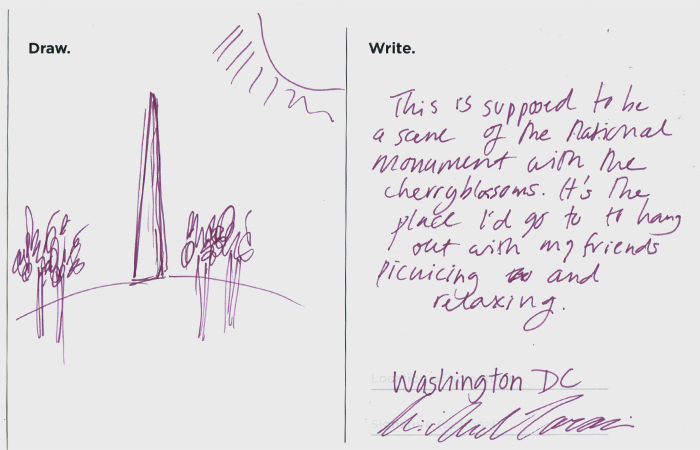 Draw.
Write.
This is supposed to be
a scene of the National
monument with the
cherryblossoms. It's the
place I'd go to to hang
out with my friends
picnicing and
relaxing.
Washington DC